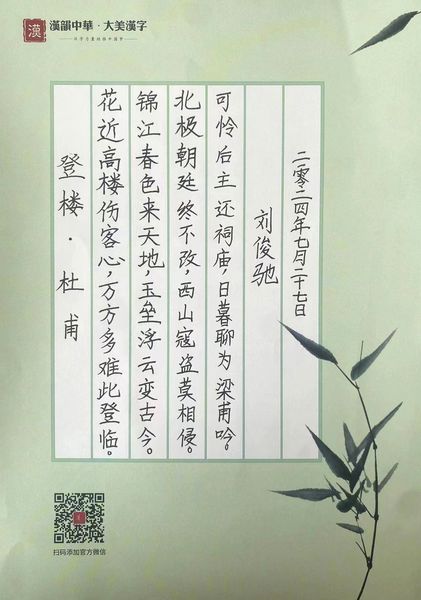 漢韻中華·大美漢字
漢
登楼·杜甫
花近高楼伤客心，万方多难此登临。
锦江春色来天地，玉垒浮云变古今。
北极朝廷终不改，西山寇盗莫相侵。
可怜后主还祠庙，日暮聊为梁甫吟。
刘俊驰
二零二四年七月二十七日
扫码添加官方微信